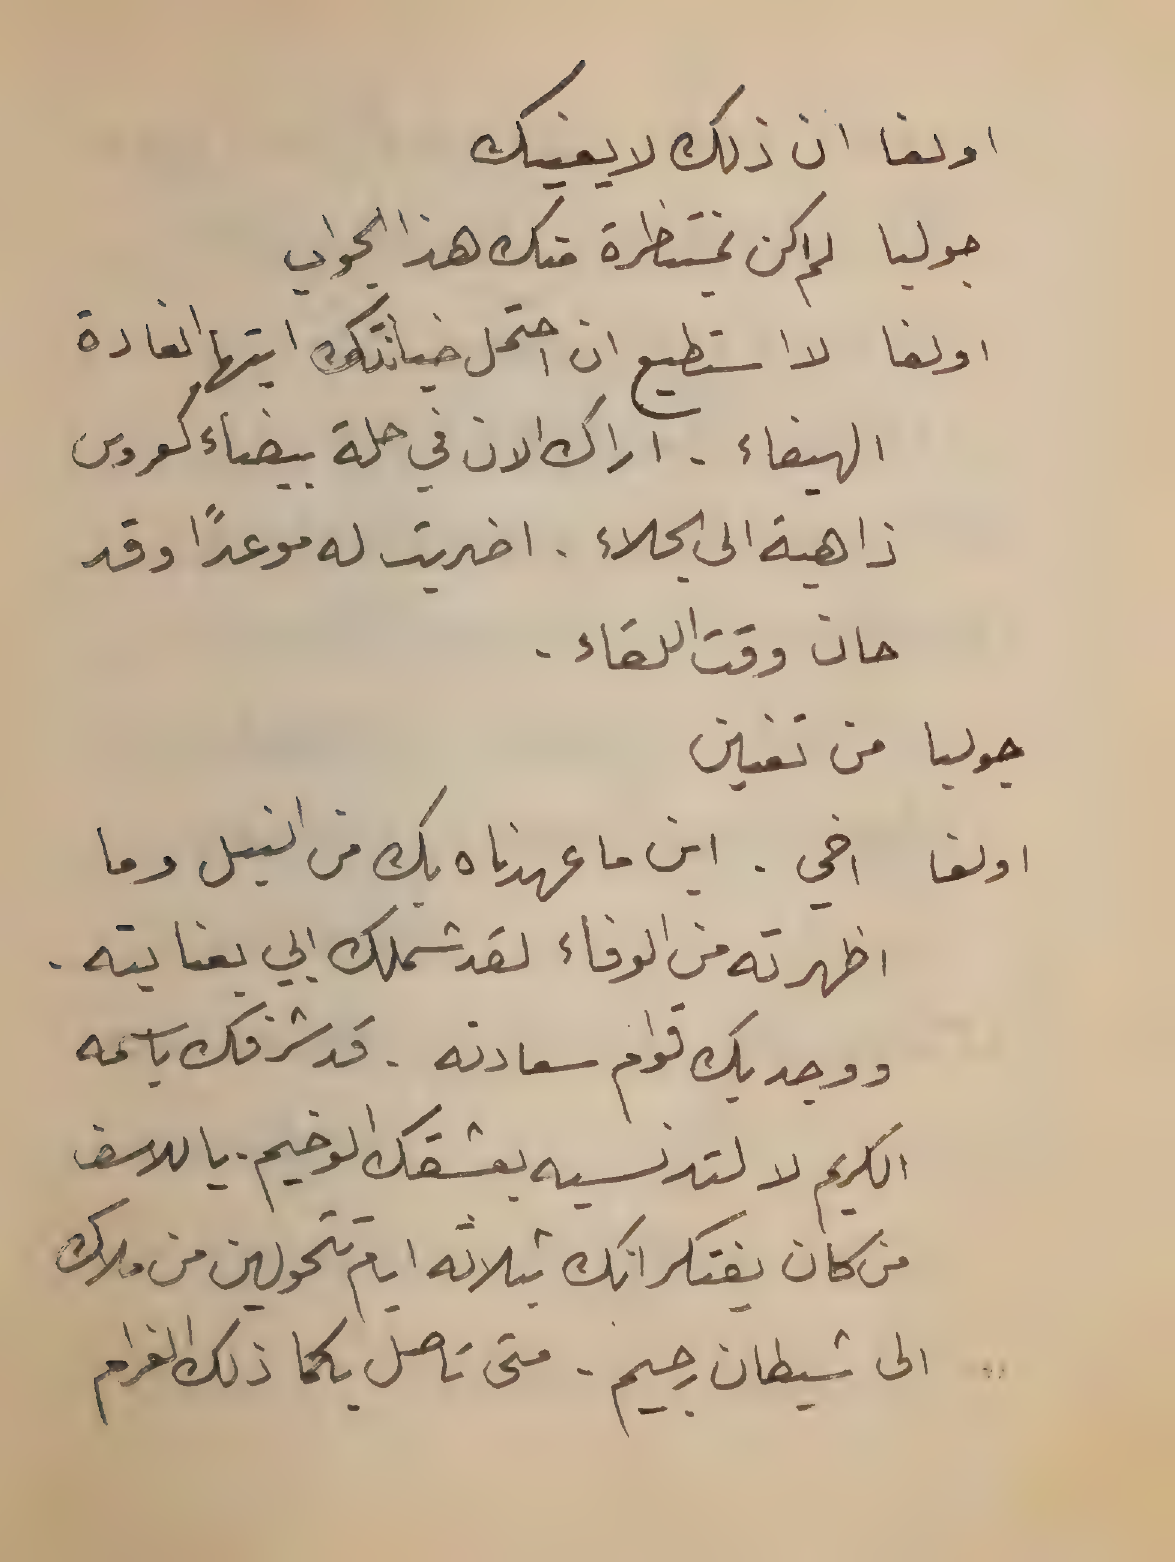 اولغا ان ذلك لا يعنيك
جوليا لم اكن منتظرة منك هذا الجواب
اولغا لا استطيع ان احتمل خيانتك ايتها الغادة
الهيفاء . اراك الان في حلة بيضاء كعروس
ذاهبة الى الجلاء . اضربت له موعدًا وقد
حان وقت اللقاء .
جوليا من تعنين
اولغا اخي . اين ما عهدناه بك من النبل وما
اظهرته من الوفاء لقد شملك ابي بعنايته .
ووجد بك قوام سعادته . قد شرفك باسمه
الكريم لا لتدنسيه بعشقك الوخيم . يا للاسف
من كان يفتكر انك بثلاثة ايام تتحولين من ملاك
الى شيطان رجيم . متى تاصل بكما ذلك الغرام